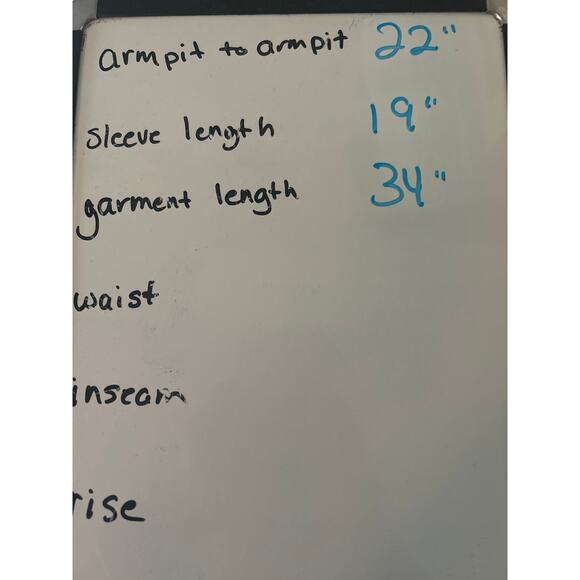 armpit to armpit 22"
sleeve length 19"
garment length 34"
waist
inseam
rise